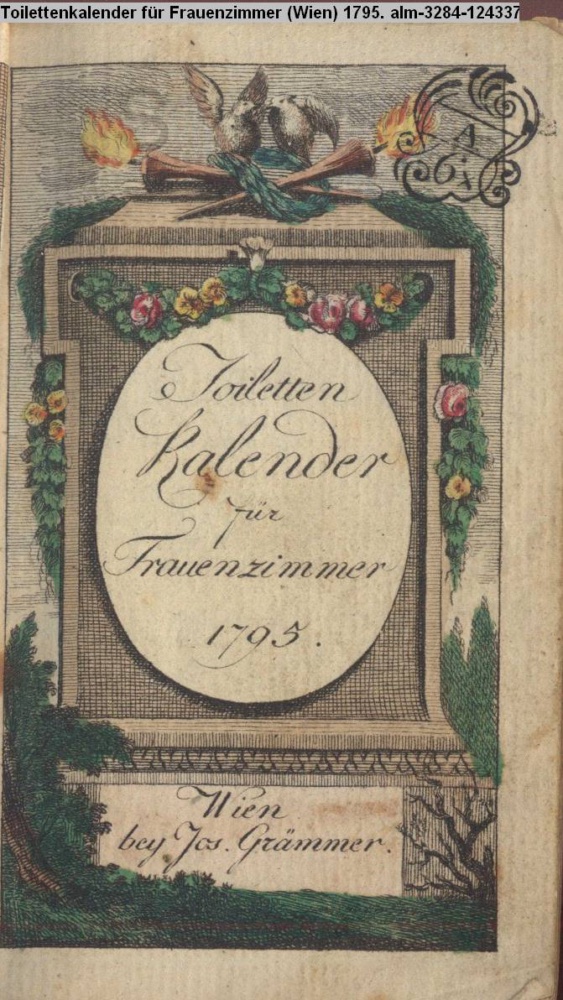 Toilettenkalender für Frauenzimmer (Wien) 1795. alm-3284-124337
Toiletten
Kalender
für
Frauenzimmer
1795.
Wien
bey Jos. Grämmer.